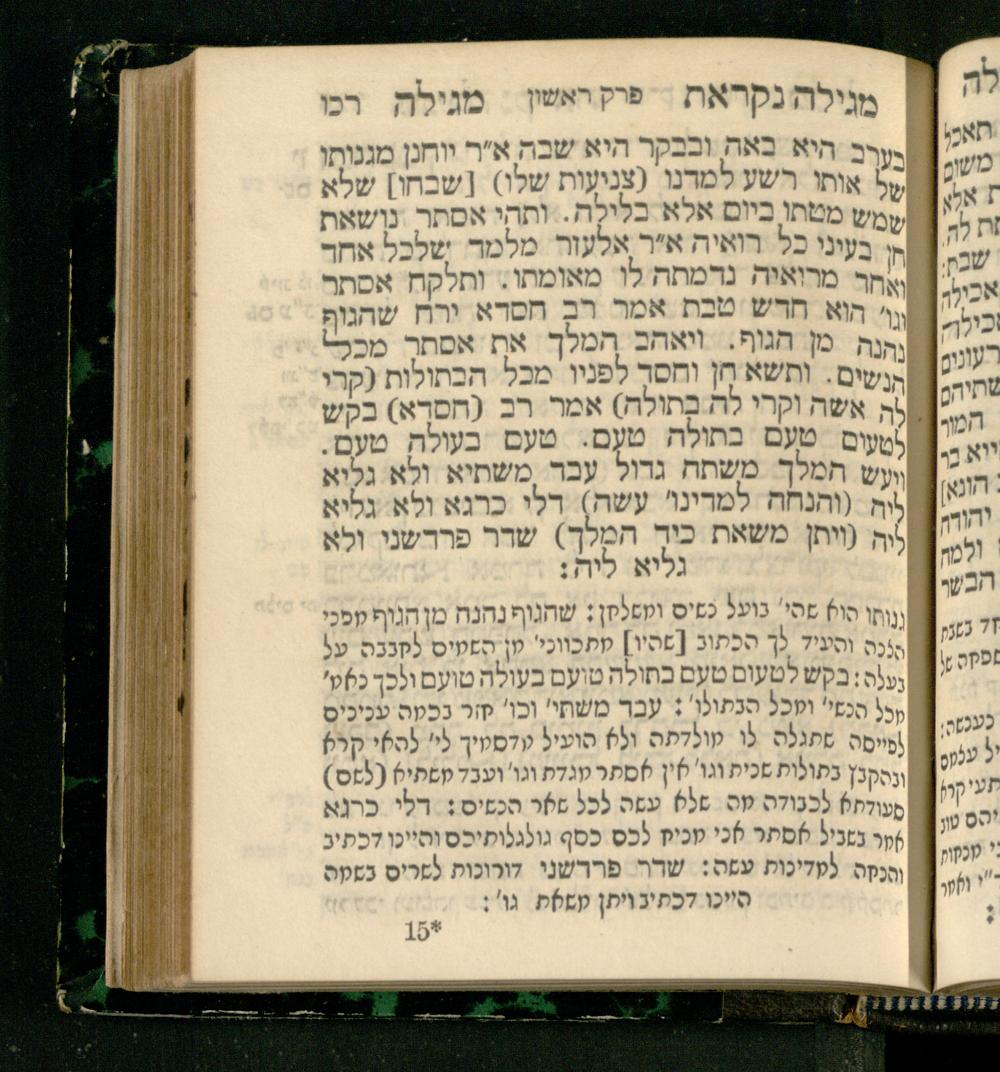 מגילה נקראת פרק ראשון מגילה רכו
בערב היא באה ובבקר היא שבה א״ר יוחנן מגנותו
של אותו רשע למדנו (צניעות שלו) [שבחו] שלא
שמש מטתו ביום אלא בלילה. ותהי אסתר נושאת
חן בעיני כל רואיה א״ר אלעזר מלמד שלכל אחד
ואחד מרואיה נדמתה לו מאומתו. ותלקח אסתר
וגו׳ הוא חדש טבת אמר רב חסדא ירח שהגוף
נהנה מן הגוף. ויאהב המלך את אסתר מכל
הנשים. ותשא חן וחסד לפניו מכל הבתולות (קרי
לה אשה וקרי לה בתולה) אמר רב (חסדא) בקש
לטעום טעם בתולה טעם. טעם בעולה טעם.
ויעש המלך משתה גדול עבד משתיא ולא גליא
ליה (והנחה למדינו׳ עשה) דלי כרגא ולא גליא
ליה (ויתן משאת כיד המלך) שדר פרדשני ולא
גליא ליה:
גנותו הוא שהי׳ בועל נשים ומשלחן: שהגוף נהנה מן הגוף מפני
הצנה והעיד לך הכתוב [שהיו] מתכווני׳ מן השמים לחבבה על
בעלה: בקש לטעום טעם בתולה טועם בעולה טועם ולכך נאמ׳
מכל הנשי׳ ומכל הבתולו׳: עבד משתי׳ וכו׳ חזר בכמה ענינים
לפייסה שתגלה לו מולדתה ולא הועיל מדסמיך לי׳ להאי קרא
ובהקבץ בתולות שנית וגו׳ אין אסתר מגדת וגו׳ ועבד משתיא (לשם)
סעודתא לכבודה מה שלא עשה לכל שאר הנשים: דלי כרגא
אמר בשביל אסתר אני מניח לכם כסף גולגלותיכם והיינו דכתיב
והנחה למדינות עשה: שדר פרדשני דורונות לשרים בשמה
היינו דכתיב ויתן משאת גו׳:
15*
לה
תאכל
משום
ת אלא
תת לה.
שבת:
אכילה
אכילה
רעונים
שתיהם
המור
יוא בר
הונא]
יהודה
ולמה
הבשר